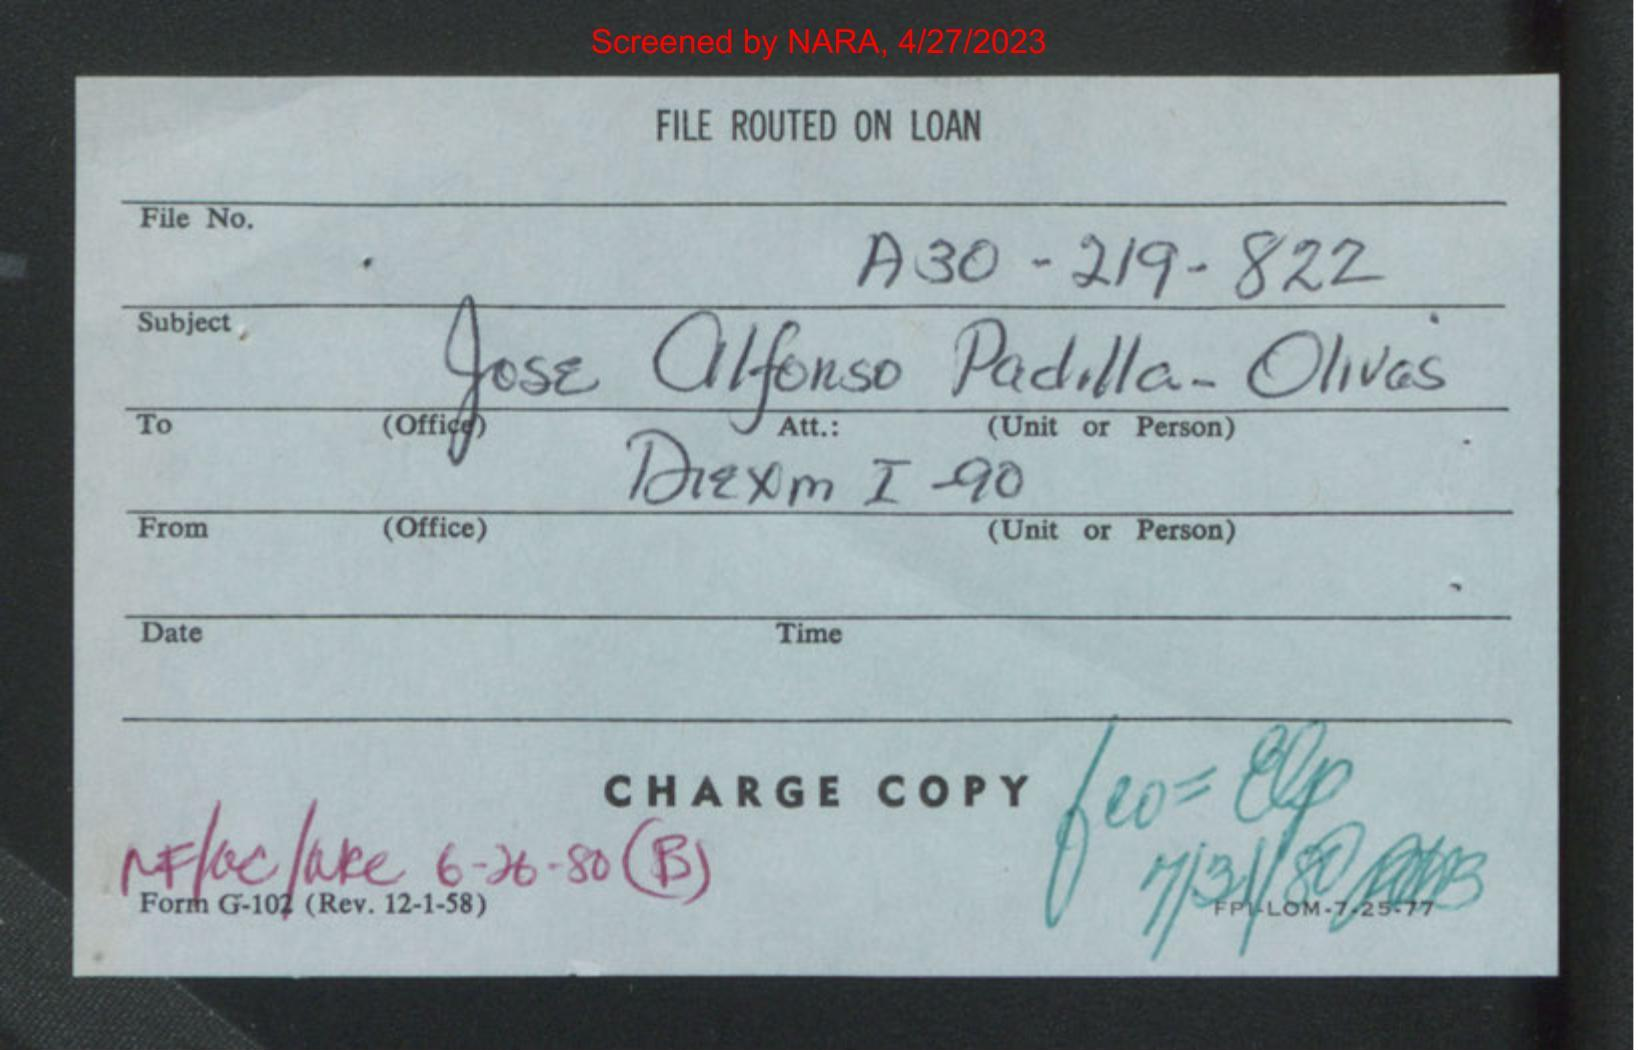 Screened by NARA, 4/27/2023
FILE ROUTED ON LOAN
File No.
A30-219-822
Subject
Jose Alfonso Padilla-Olivas
To (Office) Att.: (Unit or Person)
I-90
From (Office) (Unit or Person)
Date Time
CHARGE COPY
6-26-80 (B)
7/31/80
Form G-102 (Rev. 12-1-58)
FPI-LOM-7-25-77